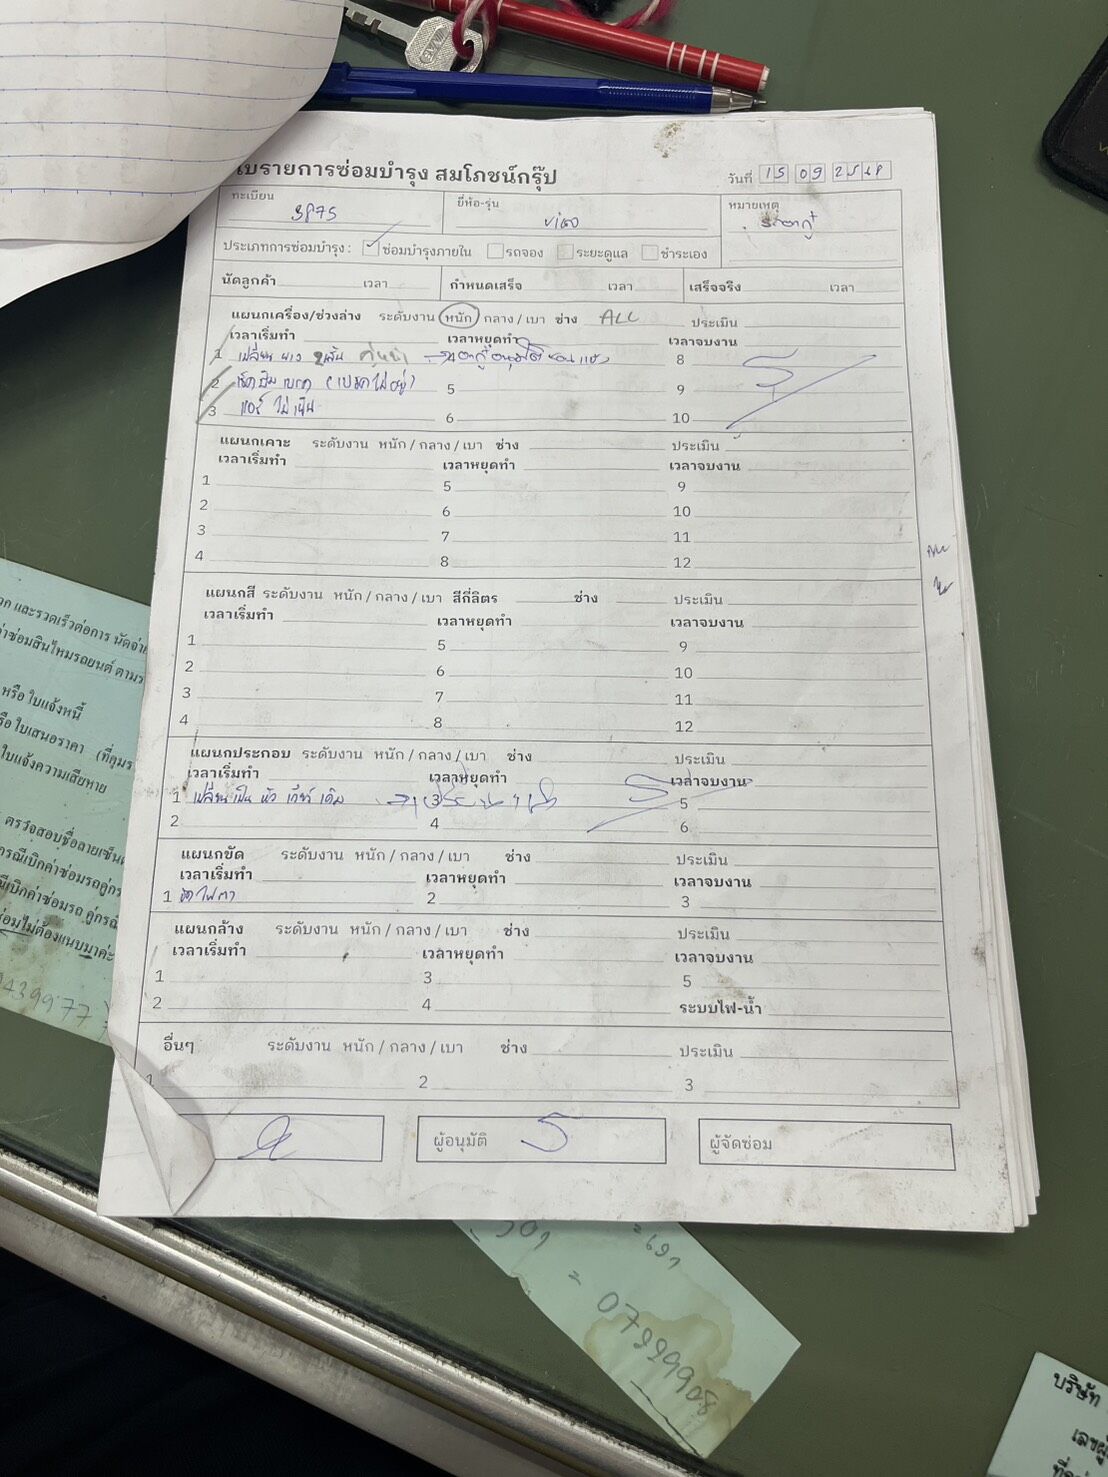 ใบรายการซ่อมบำรุง สมโภชน์กรุ๊ป
วันที่ 15 09 25
ทะเบียน 3875 ยี่ห้อ-รุ่น vigo หมายเหตุ
ประเภทการซ่อมบำรุง : ซ่อมบำรุงภายใน รถจอง ระยะดูแล ชำระเอง
นัดลูกค้า เวลา กำหนดเสร็จ เวลา เสร็จจริง เวลา
แผนกเครื่อง/ช่วงล่าง ระดับงาน หนัก กลาง / เบา ช่าง ALL ประเมิน
เวลาเริ่มทำ เวลาหยุดทำ เวลาจบงาน
1 เปลี่ยน ยาง 2เส้น คู่หน้า 8
2 เช็คปั๊มเบรก (เบรคไม่อยู่) 5 9
3 แอร์ ไม่เย็น 6 10
แผนกเคาะ ระดับงาน หนัก / กลาง / เบา ช่าง ประเมิน
เวลาเริ่มทำ เวลาหยุดทำ เวลาจบงาน
1 5 9
2 6 10
3 7 11
4 8 12
แผนกสี ระดับงาน หนัก / กลาง / เบา สีกี่ลิตร ช่าง ประเมิน
เวลาเริ่มทำ เวลาหยุดทำ เวลาจบงาน
1 5 9
2 6 10
3 7 11
4 8 12
แผนกประกอบ ระดับงาน หนัก / กลาง / เบา ช่าง ประเมิน
เวลาเริ่มทำ เวลาหยุดทำ เวลาจบงาน
1 เปลี่ยนเป็น หัว เกียร์ เดิม 3 5
2 4 6
แผนกขัด ระดับงาน หนัก / กลาง / เบา ช่าง ประเมิน
เวลาเริ่มทำ เวลาหยุดทำ เวลาจบงาน
1 ขัดไฟตา 2 3
แผนกล้าง ระดับงาน หนัก / กลาง / เบา ช่าง ประเมิน
เวลาเริ่มทำ เวลาหยุดทำ เวลาจบงาน
1 3 5
2 4 ระบบไฟ-น้ำ
อื่นๆ ระดับงาน หนัก / กลาง / เบา ช่าง ประเมิน
1 2 3
ผู้อนุมัติ ผู้จัดซ่อม
และรวดเร็วต่อการ นัดจ่าย
ค่าซ่อมสินไหมรถยนต์ ตามร
หรือ ใบแจ้งหนี้
หรือ ใบเสนอราคา
ใบแจ้งความเสียหาย
ตรวจสอบชื่อลายเซ็น
กรณีเบิกค่าซ่อมรถคู่กร
ณีเบิกค่าซ่อมรถ คู่กรณี
ซ่อมไม่ต้องแนบมาค่ะ
439977
บริษัท